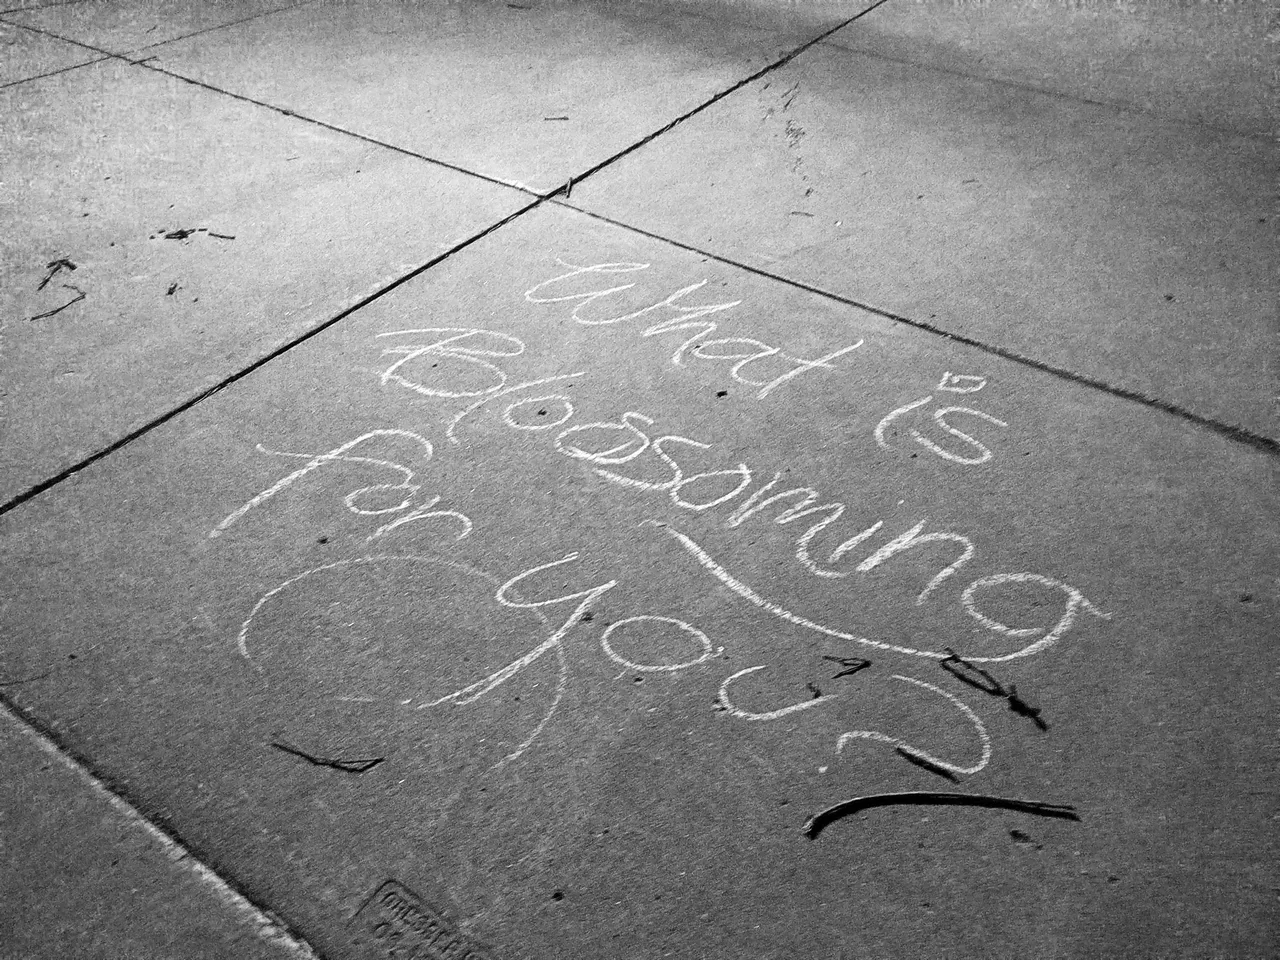 What is
Blossoming
for you?